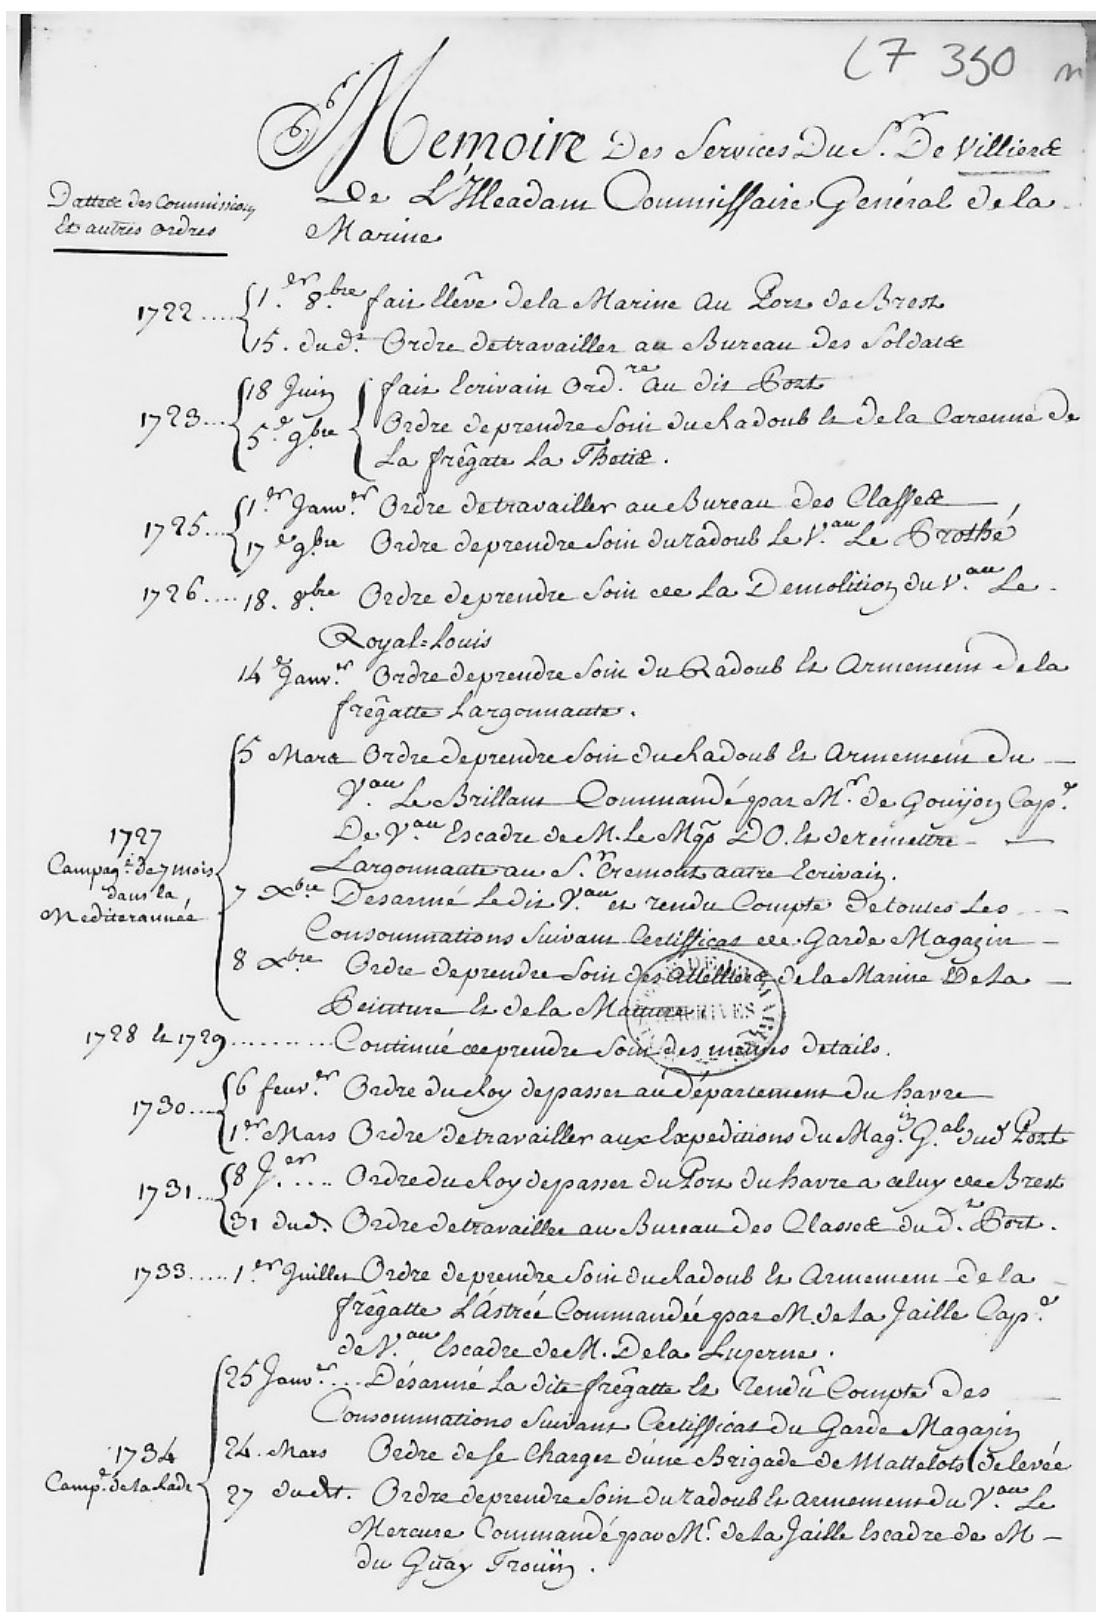 C7 350
Memoire Des Services Du S.r De Villiers
De L'Illeadam Commissaire Genéral de la
Marine
Dattes des Commissions
Et autres ordres
1722 .... 1.er 8.bre fait Elêve de la Marine au Port de Brest
15. dud.t Ordre de travailler au Bureau des Soldats
1723 ... 18 Juin fait Ecrivain Ord.re au dit Port
5.e 9.bre Ordre de prendre Soin du Radoub et de la Carenne de
La frêgate La Thetis.
1725 ... 1.er Janv.er Ordre de travailler au Bureau des Classes
17.e 9.bre Ordre de prendre Soin du radoub Le V.au Le Prothé
1726 .... 18. 8.bre Ordre de prendre Soin de La Demolition du V.au Le
Royal=Louis
14.e Janv.er Ordre de prendre Soin du Radoub et Armement de la
frêgatte Largonnaute.
5 Mars Ordre de prendre Soin du Radoub et Armement du
V.au Le Brillant Commandé par M.r de Gouyon Cap.e
De V.au Escadre de M. Le Mqs DO. et de remettre
Largonnaute au S.r Cremont autre Ecrivain.
1727
Campag.e de 7 mois
dans la
Mediterannée
7 Xbre Desarmé Le dit V.au et rendu Compte de toutes Les
Consommations Suivant Certifficat de Garde Magazin
8 Xbre Ordre de prendre Soin des Attelliers de la Marine De La
Peinture et de la Matture.
1728 et 1729 .......... Continué de prendre Soin des mêmes details.
1730 .... 6 feuv.er Ordre du Roy de passer au département du havre
1.er Mars Ordre de travailler aux Expeditions du Mag.in G.al dud Port
1731 ... 8 J.er .... Ordre du Roy de passer du Port du havre a celuy de Brest
31 dud. Ordre de travailler au Bureau des Classes du d.t Port.
1733 ..... 1.er Juillet Ordre de prendre Soin du Radoub et Armement de la
frêgatte L'Astrée Commandée par M. de La Jaille Cap.e
de V.au Escadre de M. De la Luzerne.
25 Janv.er ... Désarmé La dite frêgatte et rendû Compte des
Consommations Suivant Certifficat du Garde Magazin
1734
Camp.e de la Rade
24. Mars Ordre de se Charger d'une Brigade de Mattelots de levée
27 dudt. Ordre de prendre Soin du radoub et armement du V.au Le
Mercure Commandé par M.r de La Jaille Escadre de M
du Guay Troüin.
ARCHIVES